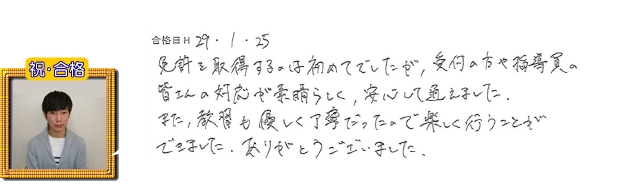 合格日H 29・1・25
祝・合格
免許を取得するのは初めてでしたが、受付の方や指導員の
皆さんの対応が素晴らしく、安心して通えました。
また、教習も優しく丁寧だったので楽しく行うことが
できました。ありがとうございました。